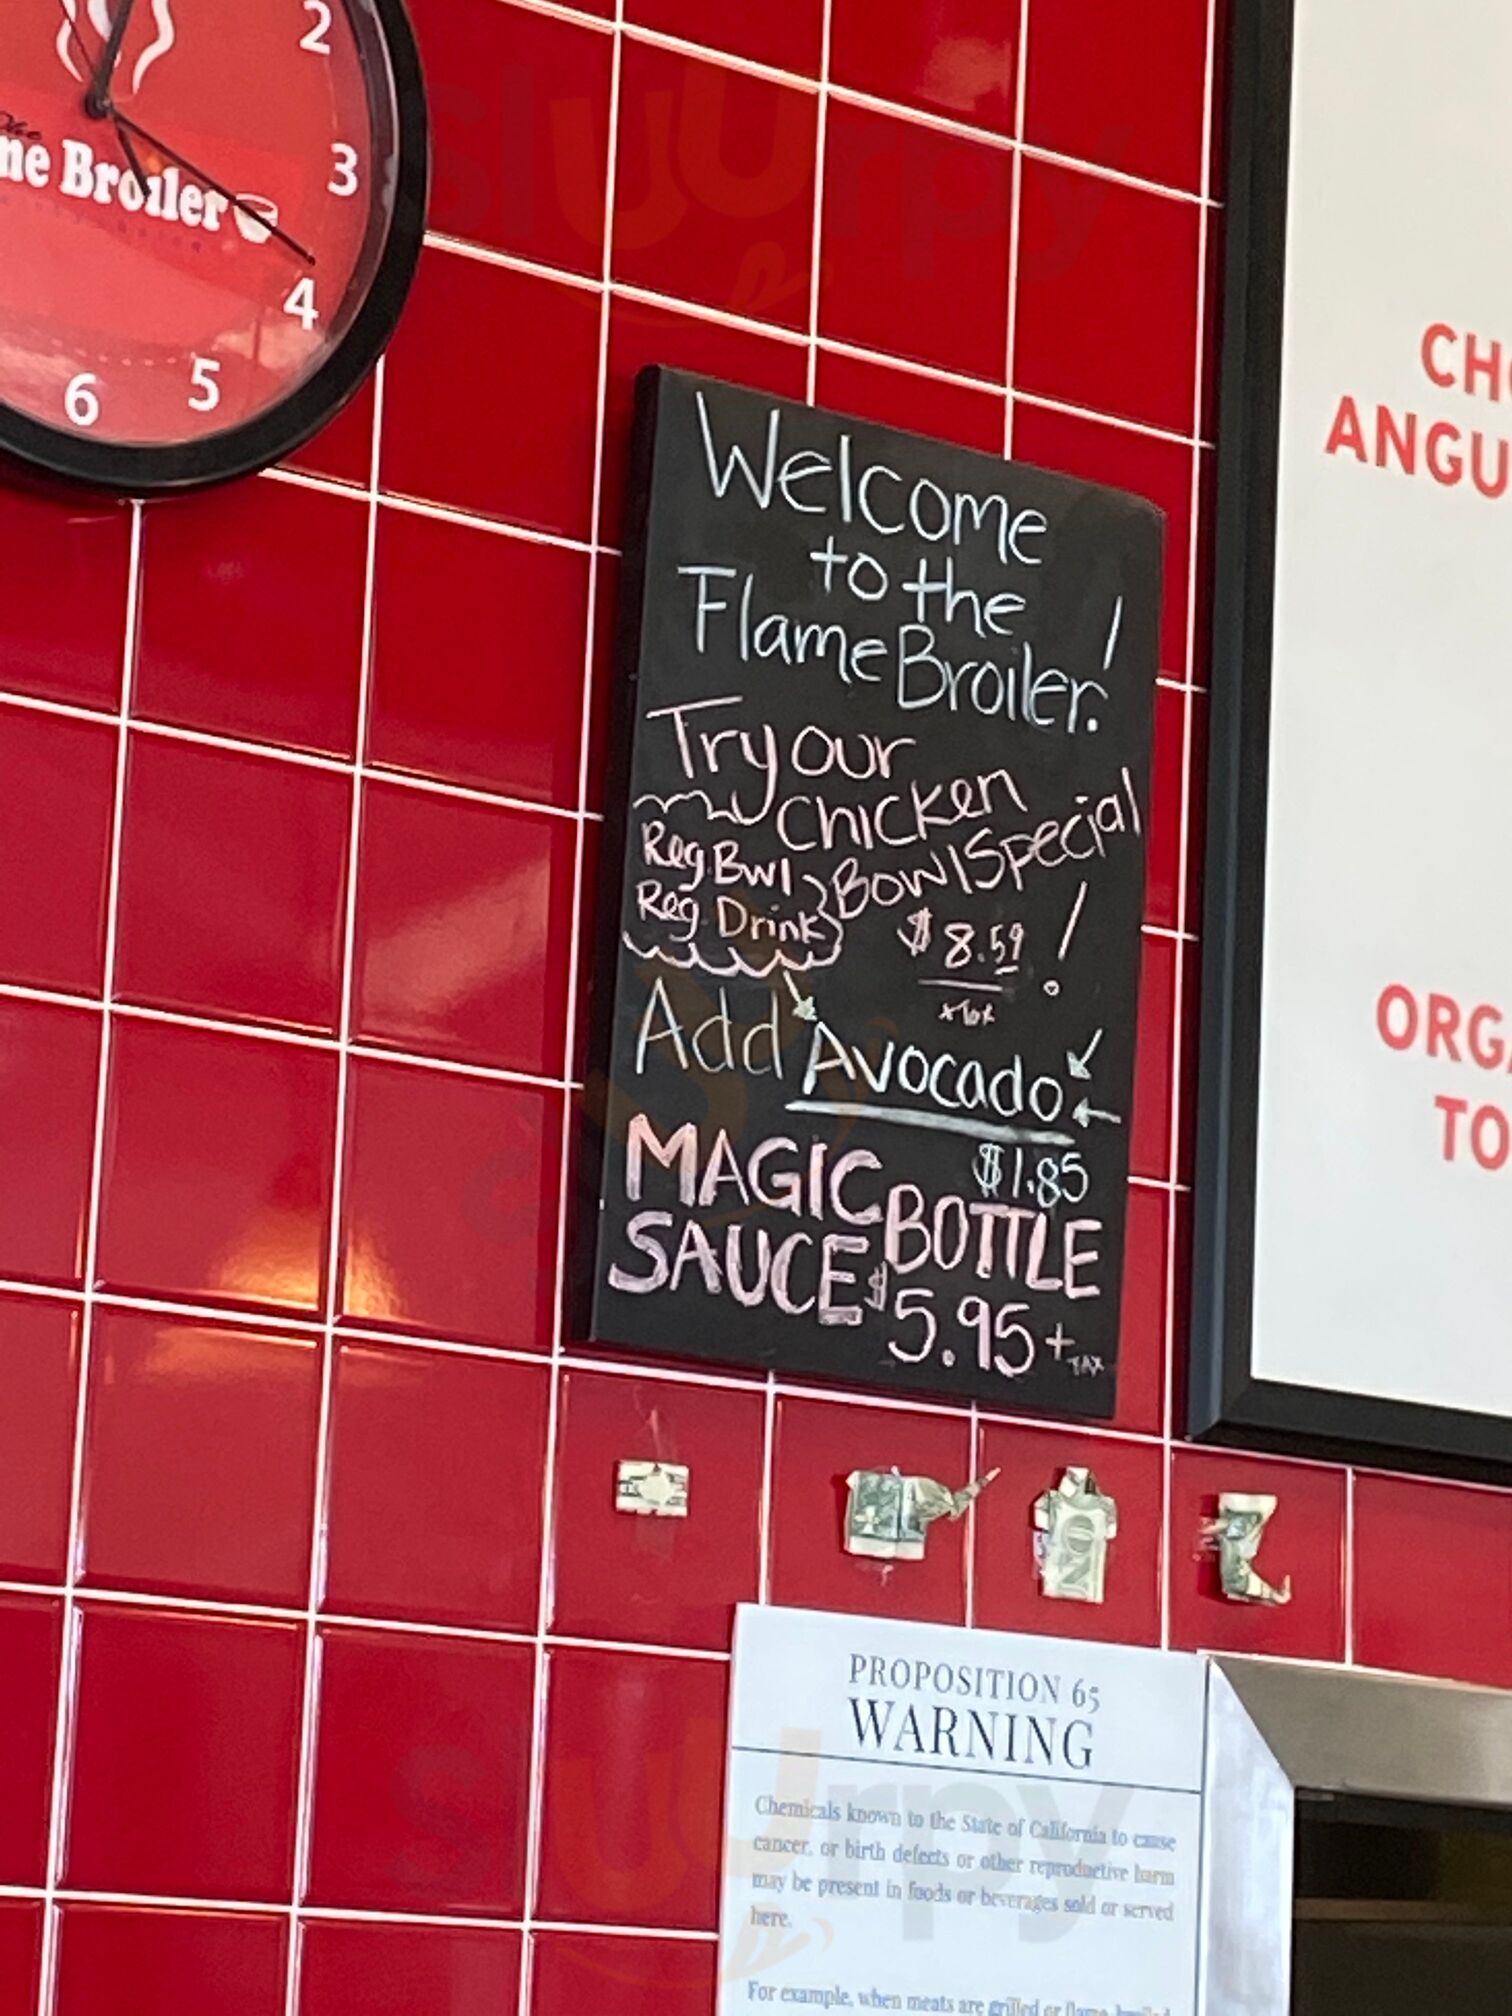 2
3
4
5
6
Broiler
CH
ANGU
Welcome
to the
Flame Broiler!
Try our
Chicken
Bowl Special
Reg. Bwl
Reg. Drink
$8.59!
+ Tax
Add Avocado
$1.85
MAGIC BOTTLE
SAUCE $5.95 +
TAX
ORGA
TO
ONE
PROPOSITION 65
WARNING
Chemicals known to the State of California to cause
cancer, or birth defects or other reproductive harm
may be present in foods or beverages sold or served
here.
For example, when meats are grilled or flame-broiled
sluurpy
sluurpy